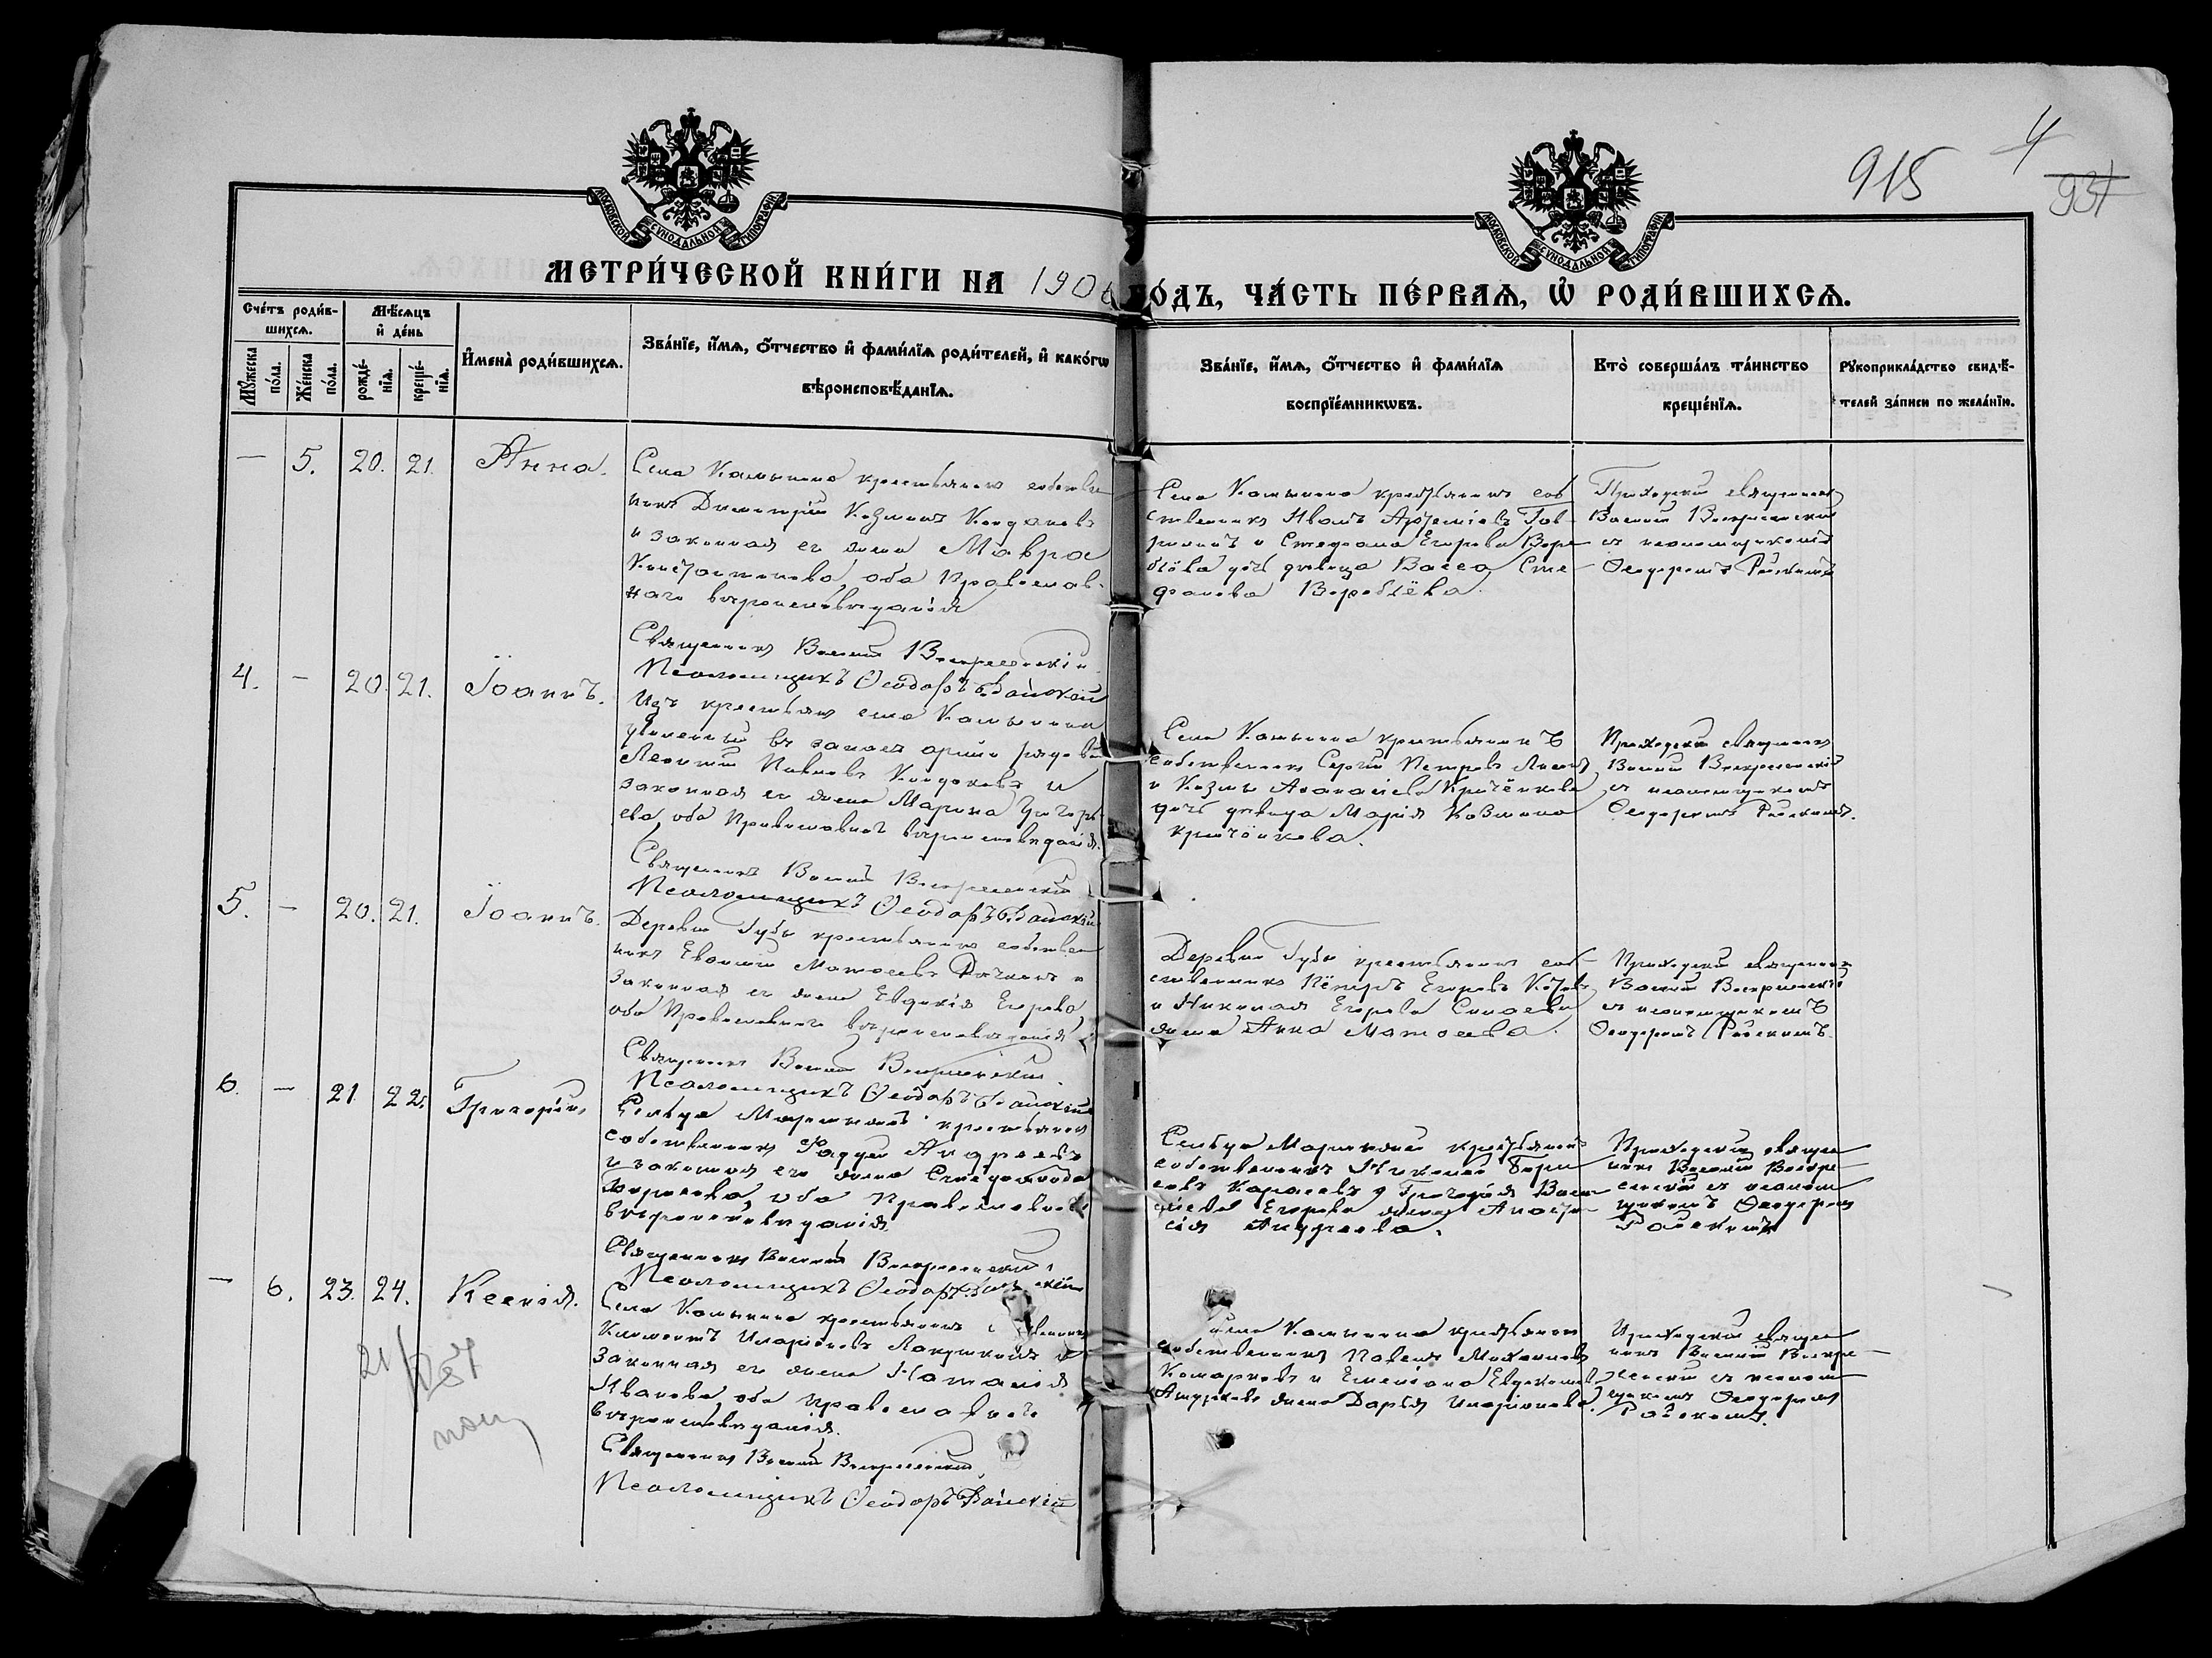 915
4
934
МОСКОВСКОЙ СѴНОДАЛЬНОЙ ТИПОГРАФІИ
МОСКОВСКОЙ СѴНОДАЛЬНОЙ ТИПОГРАФІИ
МЕТРИ́ЧЕСКОЙ КНИ́ГИ НА 1906
О́ДЪ, ЧА́СТЬ ПЕ́РВАѦ, Ѽ РОДИ́ВШИХСѦ.
Сче́тъ роди́в-
шихсѧ.
Мѣ́сѧцъ
и҆ де́нь
Мꙋ́жеска
по́ла.
Же́нска
по́ла.
рожде́-
нїѧ.
креще́-
нїѧ.
И҆мена̀ роди́вшихсѧ.
Зва́нїе, и҆́мѧ, ѻ҆́тчество и҆ фами́лїѧ роди́телей, и҆ како́гѡ
вѣроисповѣ́данїѧ.
Зва́нїе, и҆́мѧ, ѻ҆́тчество и҆ фами́лїѧ
воспрїе́мникѡвъ.
Кто̀ соверша́лъ та́инство
креще́нїѧ.
Рꙋкоприкла́дство свидѣ́-
телей за́писи по жела́нїю.
— 5. 20. 21. Анна.
Села Камынина крестьянинъ собствен
никъ Димитрій Козминъ Кондаковъ
и законная его жена Мавра
Константинова, оба Православ-
наго вѣроисповѣданія
Священникъ Василій Воскресенскій
Псаломщикъ Ѳеодоръ Райскій
Села Камынина крестьянинъ соб
ственникъ Иванъ Артеміевъ Гав
риловъ и Стефана Егорова Воро
бьёва дочь дѣвица Васса Сте
фанова Воробьёва.
Приходскій священникъ
Василій Воскресенскій
съ псаломщикомъ
Ѳеодоромъ Райскимъ
4. — 20. 21. Іоаннъ.
Изъ крестьянъ села Камынина
уволенный въ запасъ арміи рядовой
Леонтій Павловъ Кондаковъ и
законная его жена Марина Григорь
ева, оба Православнаго вѣроисповѣданія.
Священникъ Василій Воскресенскій
Псаломщикъ Ѳеодоръ Райскій
Села Камынина крестьянинъ
собственникъ Сергій Петровъ
и Козмы Аѳанасіева Крючёнкова
дочь дѣвица Марія Козмина
Крючёнкова.
Приходскій священникъ
Василій Воскресенскій
съ псаломщикомъ
Ѳеодоромъ Райскимъ.
5. — 20. 21. Іоаннъ.
Деревни Губы крестьянинъ собствен
никъ Евѳимій Матѳеевъ и
законная его жена Евдокія Егорова,
оба Православнаго вѣроисповѣданія
Священникъ Василій Воскресенскій
Псаломщикъ Ѳеодоръ Райскій
Деревни Губы крестьянинъ соб
ственникъ Пётръ Егоровъ
и Николая Егорова
жена Анна Матѳеева.
Приходскій священникъ
Василій Воскресенскій
съ псаломщикомъ
Ѳеодоромъ Райскимъ.
6. — 21 22. Григорій.
Сельца крестьянинъ
собственникъ Фаддей Андреевъ
и законная его жена Стефанида
оба Православнаго
вѣроисповѣданія.
Священникъ Василій Воскресенскій
Псаломщикъ Ѳеодоръ Райскій
Сельца крестьянинъ
собственникъ Николай Бори
совъ и Григорія Васи
ліева Егорова жена Анаста
сія Андреева.
Приходскій священ
никъ Василій Воскре
сенскій съ псалом
щикомъ Ѳеодоромъ
Райскимъ
— 6. 23. 24. Ксенія.
Села Камынина крестьянинъ
Климентъ Иларіоновъ Локушкинъ и
законная его жена Наталія
Иванова, оба православнаго
вѣроисповѣданія.
Священникъ Василій Воскресенскій
Псаломщикъ Ѳеодоръ Райскій
Села Камынина крестьянинъ
собственникъ Павелъ Михаиловъ
Комаровъ и Емеліана Евдокимова
жена Дарья Иларіонова.
Приходскій священ
никъ Василій Воскре
сенскій съ псалом
щикомъ Ѳеодоромъ
Райскимъ.